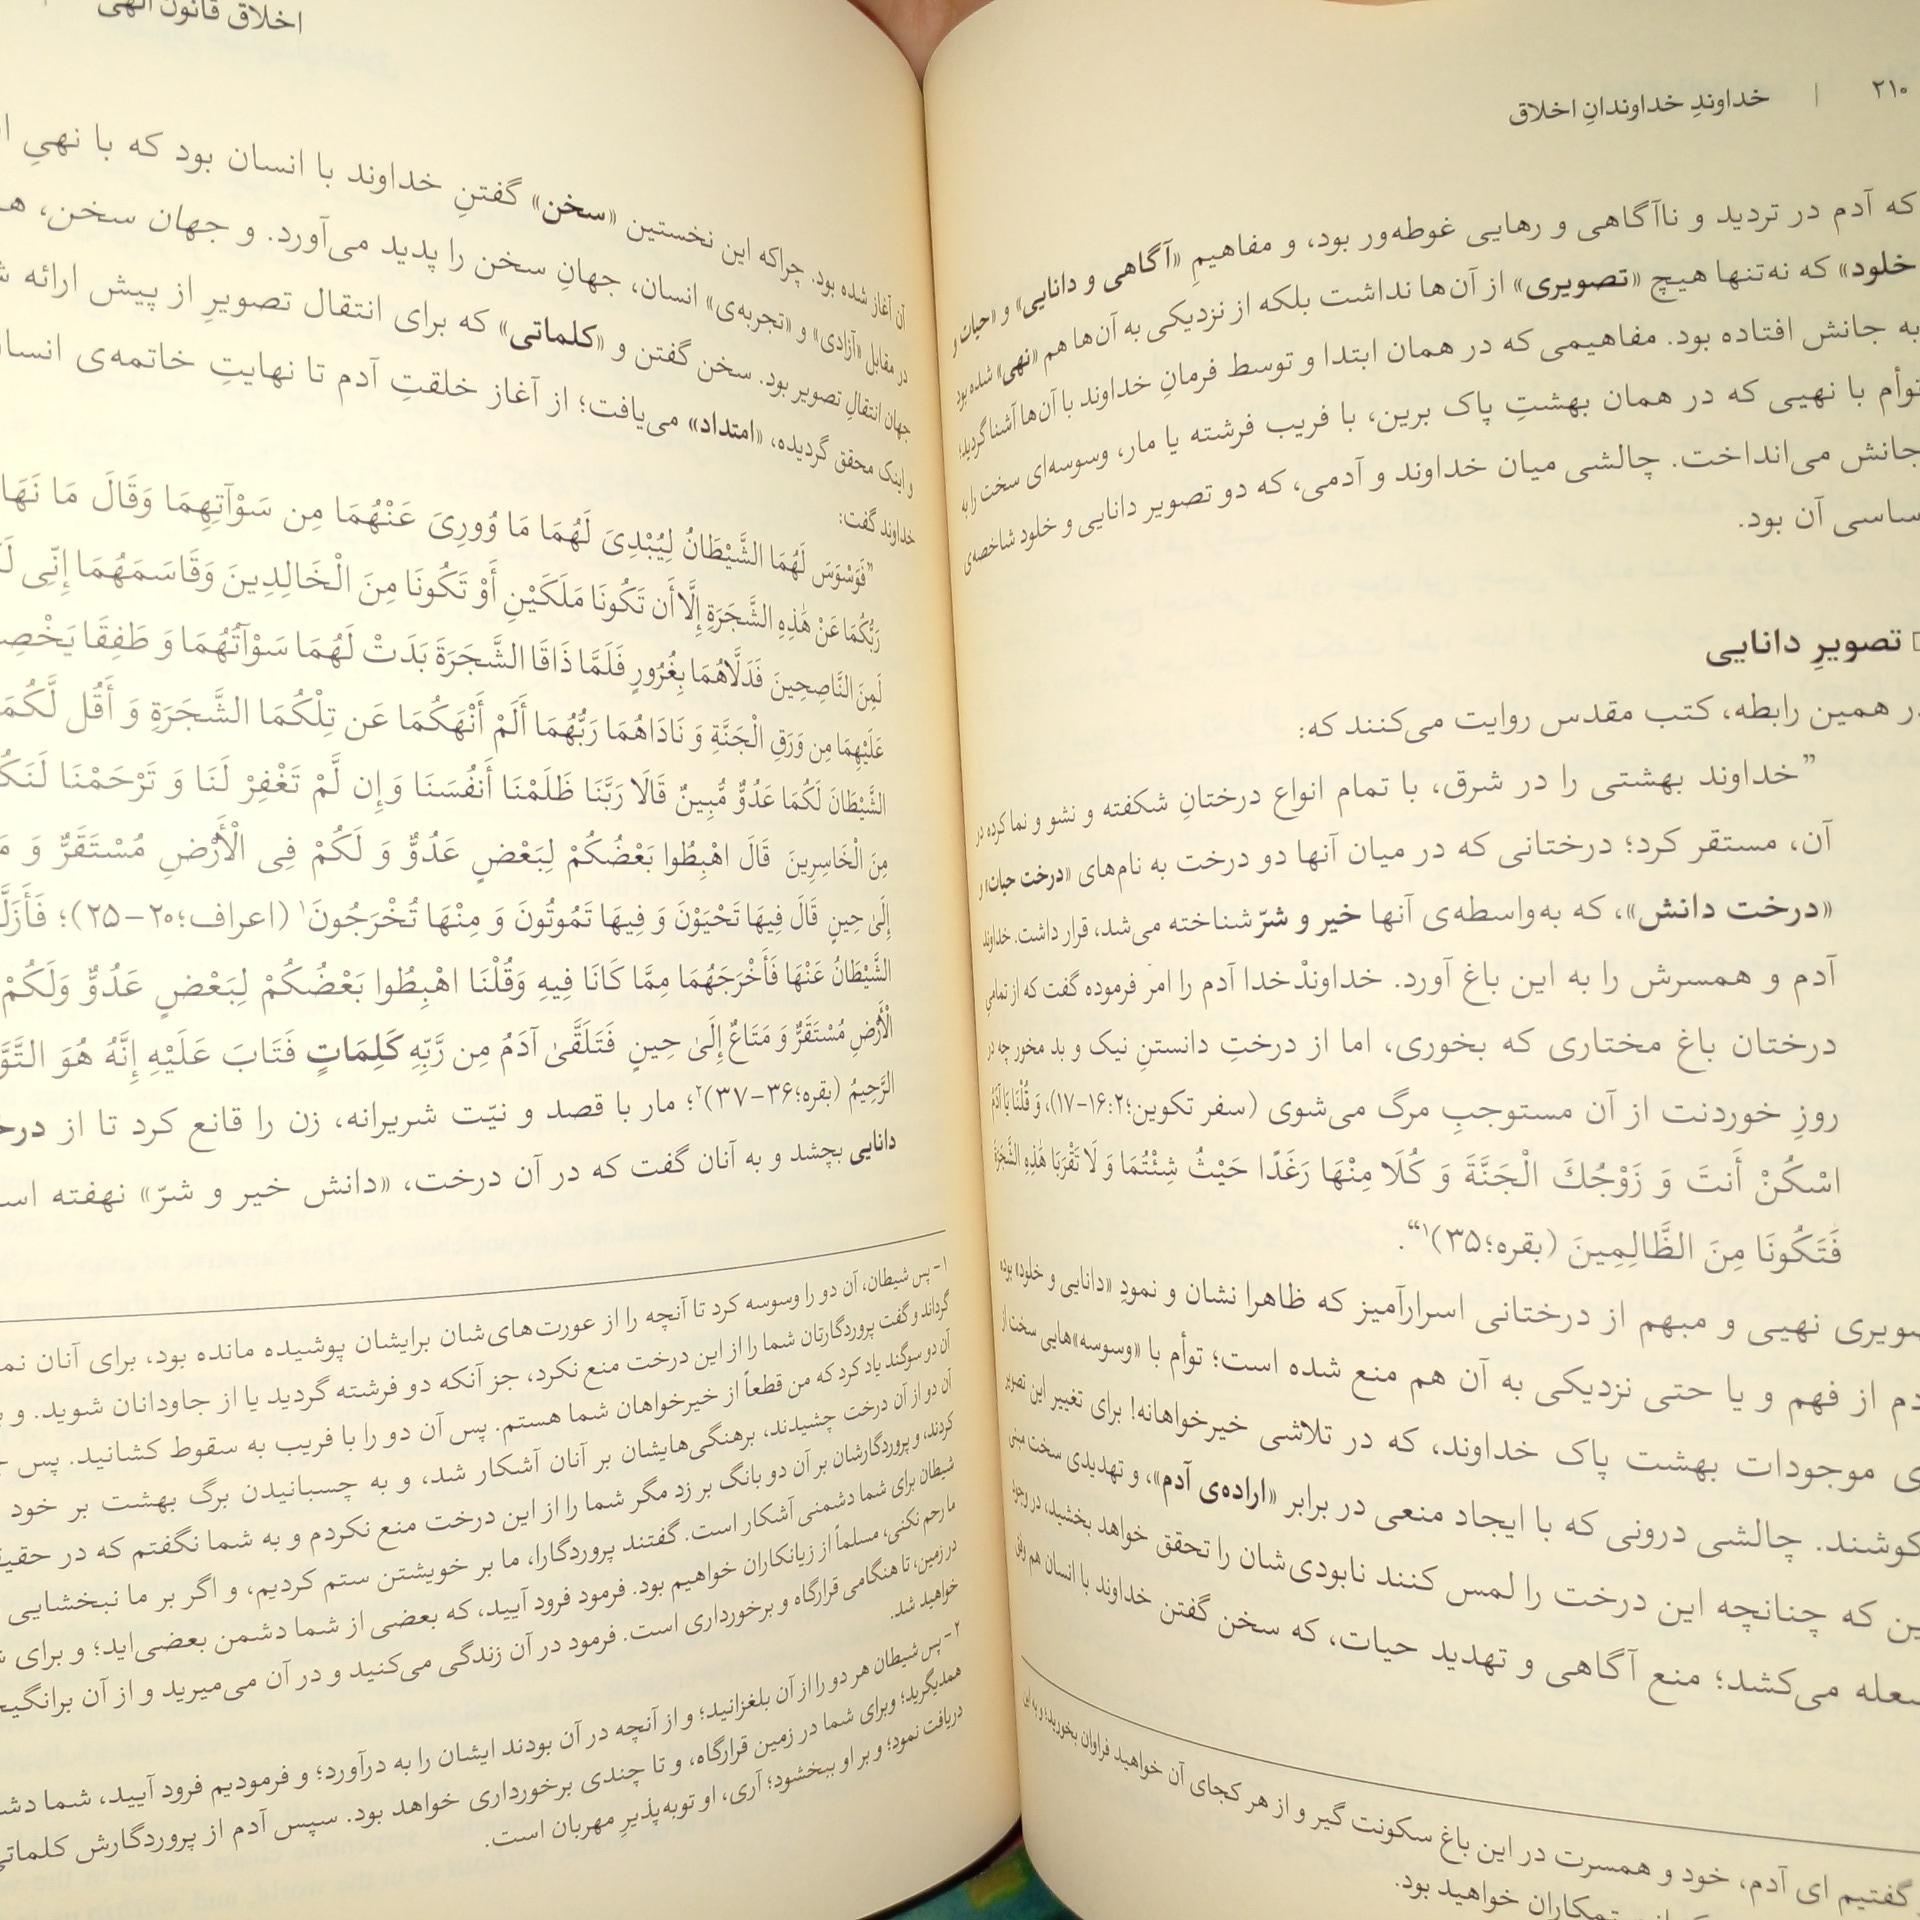 ۲۱۰ | خداوندِ خداوندانِ اخلاق
که آدم در تردید و ناآگاهی و رهایی غوطه‌ور بود، و مفاهیمِ «آگاهی و دانایی» و «حیات و
خلود» که نه‌تنها هیچ «تصویری» از آن‌ها نداشت بلکه از نزدیکی به آن‌ها هم «نهی» شده بود
به جانش افتاده بود. مفاهیمی که در همان ابتدا و توسط فرمانِ خداوند با آن‌ها آشنا گردید؛
توأم با نهیی که در همان بهشتِ پاک برین، با فریب فرشته یا مار، وسوسه‌ای سخت را به
جانش می‌انداخت. چالشی میان خداوند و آدمی، که دو تصویر دانایی و خلود شاخصه‌ی
ساسی آن بود.
تصویرِ دانایی
در همین رابطه، کتب مقدس روایت می‌کنند که:
”خداوند بهشتی را در شرق، با تمام انواع درختانِ شکفته و نشو و نما کرده در
آن، مستقر کرد؛ درختانی که در میان آنها دو درخت به نام‌های «درخت حیات» و
«درخت دانش»، که به‌واسطه‌ی آنها خیر و شرّ شناخته می‌شد، قرار داشت. خداوند
آدم و همسرش را به این باغ آورد. خداوندْخدا آدم را امر فرموده گفت که از تمامیِ
درختان باغ مختاری که بخوری، اما از درختِ دانستنِ نیک و بد مخور چه در
روزِ خوردنت از آن مستوجبِ مرگ می‌شوی (سفر تکوین؛۲:‏۱۶-۱۷)، وَ قُلْنَا یَا آدَمُ
اسْکُنْ أَنتَ وَ زَوْجُكَ الْجَنَّةَ وَ کُلَا مِنْهَا رَغَدًا حَیْثُ شِئْتُمَا وَ لَا تَقْرَبَا هَٰذِهِ الشَّجَرَةَ
فَتَکُونَا مِنَ الظَّالِمِینَ (بقره؛۳۵)۱“.
صویری نهیی و مبهم از درختانی اسرارآمیز که ظاهرا نشان و نمودِ «دانایی و خلود» بود؛
دم از فهم و یا حتی نزدیکی به آن هم منع شده است؛ توأم با «وسوسه»هایی سخت از
ی موجودات بهشت پاک خداوند، که در تلاشی خیرخواهانه! برای تغییر این تصویر
کوشند. چالشی درونی که با ایجاد منعی در برابر «اراده‌ی آدم»، و تهدیدی سخت مبنی
ین که چنانچه این درخت را لمس کنند نابودی‌شان را تحقق خواهد بخشید، در وجود
سعله می‌کشد؛ منع آگاهی و تهدید حیات، که سخن گفتن خداوند با انسان هم وفق
گفتیم ای آدم، خود و همسرت در این باغ سکونت گیر و از هر کجای آن خواهید فراوان بخورید؛ و به این
ستمکاران خواهید بود.
اخلاق قانون الهی
آن آغاز شده بود. چراکه این نخستین «سخن» گفتنِ خداوند با انسان بود که با نهیِ
در مقابل «آزادی» و «تجربه‌ی» انسان، جهانِ سخن را پدید می‌آورد. و جهان سخن،
جهان انتقالِ تصویر بود. سخن گفتن و «کلماتی» که برای انتقال تصویرِ از پیش ارائه
و اینک محقق گردیده، «امتداد» می‌یافت؛ از آغاز خلقتِ آدم تا نهایتِ خاتمه‌ی
خداوند گفت:
”فَوَسْوَسَ لَهُمَا الشَّیْطَانُ لِیُبْدِیَ لَهُمَا مَا وُورِیَ عَنْهُمَا مِن سَوْآتِهِمَا وَقَالَ مَا
رَبُّکُمَا عَنْ هَٰذِهِ الشَّجَرَةِ إِلَّا أَن تَکُونَا مَلَکَیْنِ أَوْ تَکُونَا مِنَ الْخَالِدِینَ وَقَاسَمَهُمَا إِنِّی
لَمِنَ النَّاصِحِینَ فَدَلَّاهُمَا بِغُرُورٍ فَلَمَّا ذَاقَا الشَّجَرَةَ بَدَتْ لَهُمَا سَوْآتُهُمَا وَ طَفِقَا
عَلَیْهِمَا مِن وَرَقِ الْجَنَّةِ وَ نَادَاهُمَا رَبُّهُمَا أَلَمْ أَنْهَکُمَا عَن تِلْکُمَا الشَّجَرَةِ وَ أَقُل لَّکُمَا
الشَّیْطَانَ لَکُمَا عَدُوٌّ مُّبِینٌ قَالَا رَبَّنَا ظَلَمْنَا أَنفُسَنَا وَإِن لَّمْ تَغْفِرْ لَنَا وَ تَرْحَمْنَا
مِنَ الْخَاسِرِینَ قَالَ اهْبِطُوا بَعْضُکُمْ لِبَعْضٍ عَدُوٌّ وَ لَکُمْ فِی الْأَرْضِ مُسْتَقَرٌّ وَ
إِلَیٰ حِینٍ قَالَ فِیهَا تَحْیَوْنَ وَ فِیهَا تَمُوتُونَ وَ مِنْهَا تُخْرَجُونَ۱ (اعراف؛۲۰-۲۵)؛
الشَّیْطَانُ عَنْهَا فَأَخْرَجَهُمَا مِمَّا کَانَا فِیهِ وَقُلْنَا اهْبِطُوا بَعْضُکُمْ لِبَعْضٍ عَدُوٌّ وَلَکُمْ
الْأَرْضِ مُسْتَقَرٌّ وَ مَتَاعٌ إِلَیٰ حِینٍ فَتَلَقَّیٰ آدَمُ مِن رَّبِّهِ کَلِمَاتٍ فَتَابَ عَلَیْهِ إِنَّهُ هُوَ
الرَّحِیمُ (بقره؛۳۶-۳۷)۲؛ مار با قصد و نیّت شریرانه، زن را قانع کرد تا از
دانایی بچشد و به آنان گفت که در آن درخت، «دانش خیر و شرّ» نهفته
۱- پس شیطان، آن دو را وسوسه کرد تا آنچه را از عورت‌های‌شان برایشان پوشیده مانده بود، برای آنان
گرداند و گفت پروردگارتان شما را از این درخت منع نکرد، جز آنکه دو فرشته گردید یا از جاودانان شوید. و
آن دو سوگند یاد کرد که من قطعاً از خیرخواهان شما هستم. پس آن دو را با فریب به سقوط کشانید. پس
آن دو از آن درخت چشیدند، برهنگی‌هایشان بر آنان آشکار شد، و به چسبانیدن برگ بهشت بر خود
کردند، و پروردگارشان بر آن دو بانگ بر زد مگر شما را از این درخت منع نکردم و به شما نگفتم که در
شیطان برای شما دشمنی آشکار است. گفتند پروردگارا، ما بر خویشتن ستم کردیم، و اگر بر ما نبخشایی
ما رحم نکنی، مسلماً از زیانکاران خواهیم بود. فرمود فرود آیید، که بعضی از شما دشمن بعضی‌اید؛ و برای
در زمین، تا هنگامی قرارگاه و برخورداری است. فرمود در آن زندگی می‌کنید و در آن می‌میرید و از آن
خواهید شد.
۲- پس شیطان هر دو را از آن بلغزانید؛ و از آنچه در آن بودند ایشان را به درآورد؛ و فرمودیم فرود آیید، شما
همدیگرید؛ وبرای شما در زمین قرارگاه، و تا چندی برخورداری خواهد بود. سپس آدم از پروردگارش کلماتی
دریافت نمود؛ و بر او ببخشود؛ آری، او توبه‌پذیرِ مهربان است.